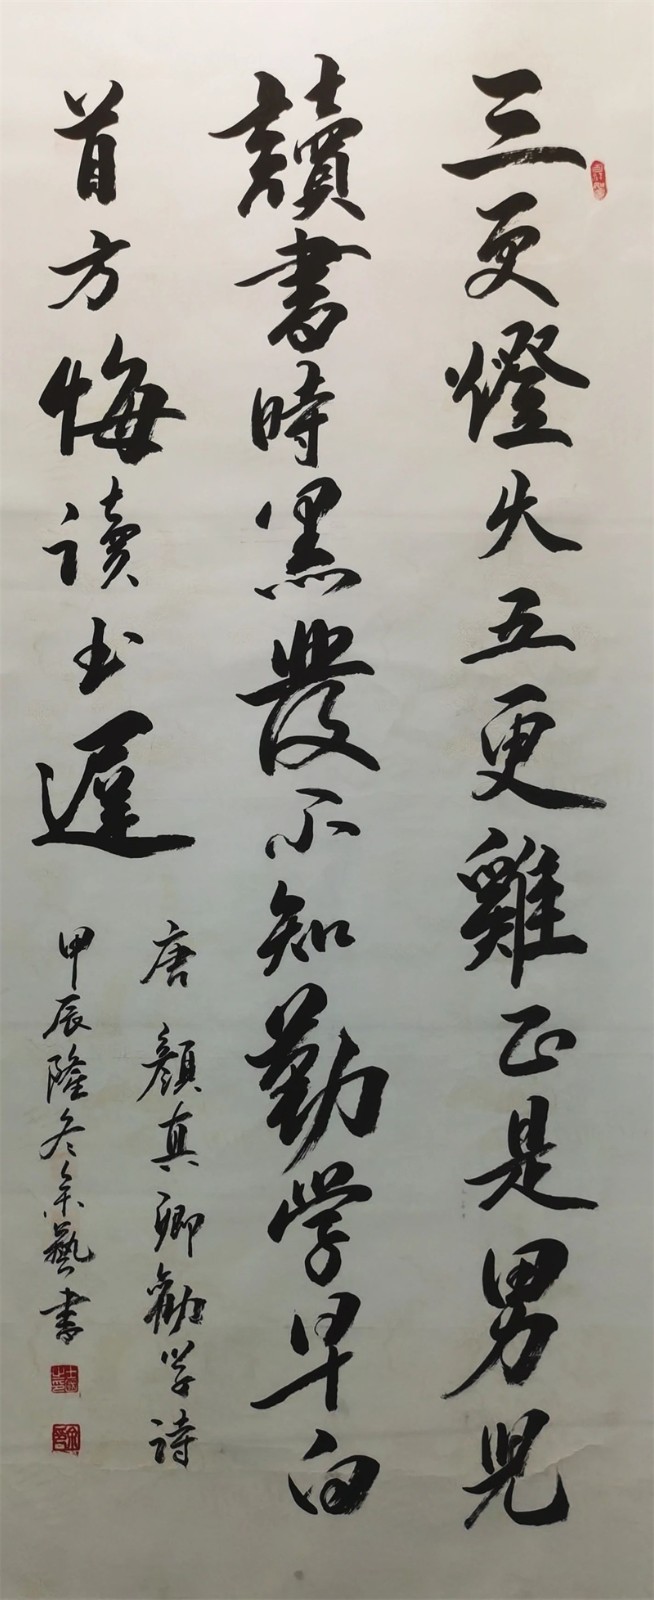 三更燈火五更雞正是男兒
讀書時黑發不知勤學早白
首方悔读书遲
唐顏真卿勸学詩
甲辰隆冬余藝書